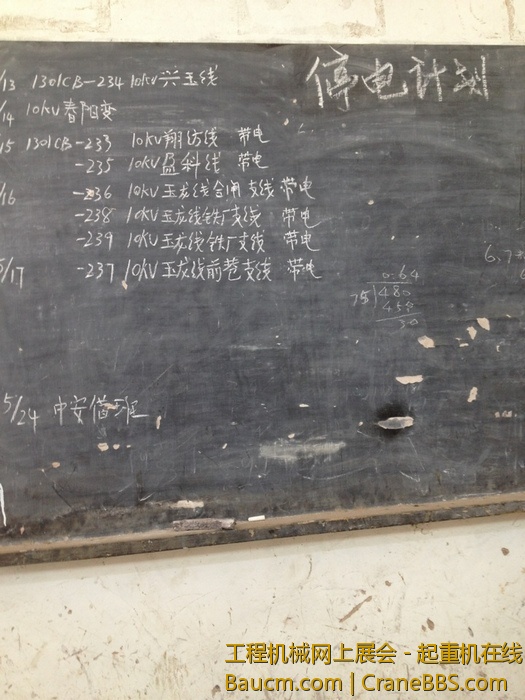 停电计划
/13 1301CB-234 10KV兴玉线
/14 10KV春阳变
15 1301CB-233 10KV翔纺线 带电
-235 10KV盈科线 带电
/16 -236 10KV玉龙线合闸支线 带电
-238 10KV玉龙线铁厂支线 带电
-239 10KV玉龙线铁厂支线 带电
5/17 -237 10KV玉龙线前巷支线 带电
0.64
75 480
450
30
6.7
5/24 中安借班
工程机械网上展会 - 起重机在线
Baucm.com | CraneBBS.com